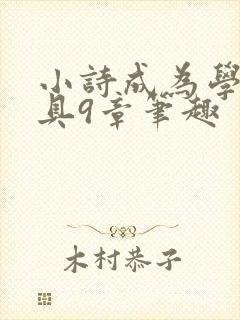 小詩成為學
具9章筆趣
木村恭子